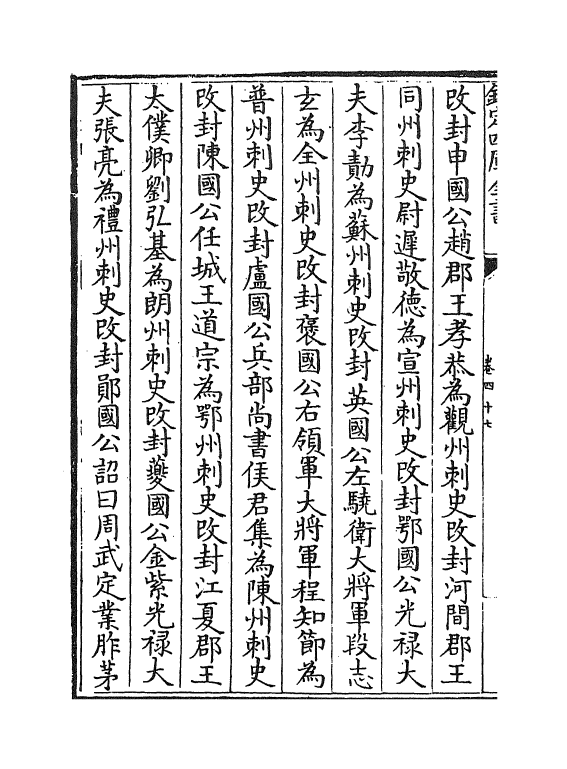 欽定四庫全書
卷四十七
改封申國公趙郡王孝恭為觀州刺史改封河間郡王
同州刺史尉遲敬德為宣州刺史改封鄂國公光禄大
夫李勣為蘇州刺史改封英國公左驍衛大將軍段志
玄為全州刺史改封褒國公右領軍大將軍程知節為
普州刺史改封盧國公兵部尚書侯君集為陳州刺史
改封陳國公任城王道宗為鄂州刺史改封江夏郡王
太僕卿劉弘基為朗州刺史改封夔國公金紫光禄大
夫張亮為禮州刺史改封鄖國公詔曰周武定業胙茅